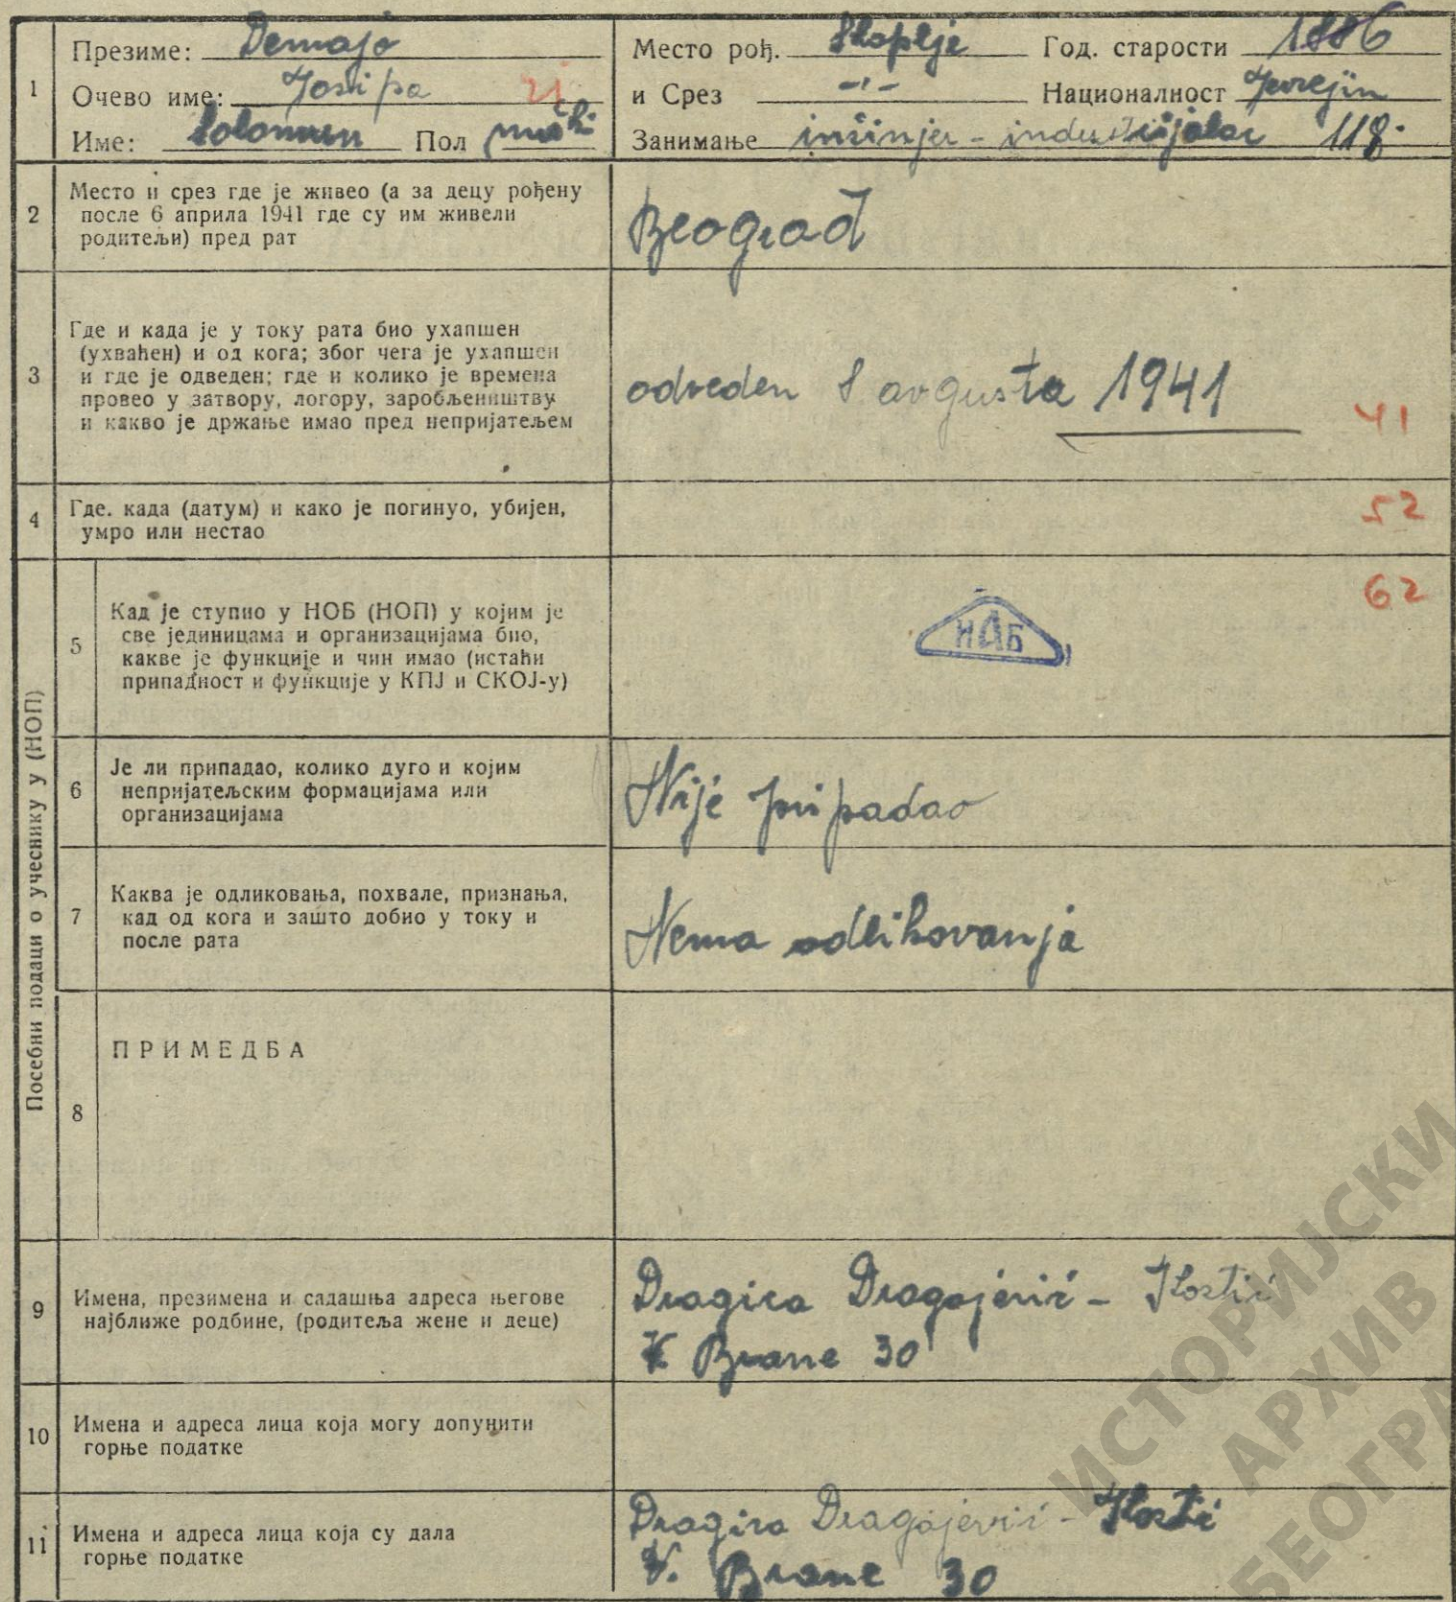 1
Презиме: Demajo
Очево име: Josipa
Име: Solomun Пол muški
Место рођ. Skoplje Год. старости 1886
и Срез -"- Националност Jevrejin
Занимање inžinjer - industrijalac 118.
2
Место и срез где је живео (а за децу рођену
после 6 априла 1941 где су им живели
родитељи) пред рат
Beograd
3
Где и када је у току рата био ухапшен
(ухваћен) и од кога; због чега је ухапшен
и где је одведен; где и колико је времена
провео у затвору, логору, заробљеништву
и какво је држање имао пред непријатељем
odveden 8 avgusta 1941
41
4
Где. када (датум) и како је погинуо, убијен,
умро или нестао
52
Посебни подаци о учеснику у (НОП)
5
Кад је ступио у НОБ (НОП) у којим је
све јединицама и организацијама био,
какве је функције и чин имао (истаћи
припадност и функције у КПЈ и СКОЈ-у)
62
ИАБ
6
Је ли припадао, колико дуго и којим
непријатељским формацијама или
организацијама
Nije pripadao
7
Каква је одликовања, похвале, признања,
кад од кога и зашто добио у току и
после рата
Nema odlikovanja
8
ПРИМЕДБА
9
Имена, презимена и садашња адреса његове
најближе родбине, (родитеља жене и деце)
Dragica Dragojević - Kostić
V. Brane 30
10
Имена и адреса лица која могу допунити
горње податке
11
Имена и адреса лица која су дала
горње податке
Dragica Dragojević - Kostić
V. Brane 30
ИСТОРИЈСКИ
АРХИВ
БЕОГРА